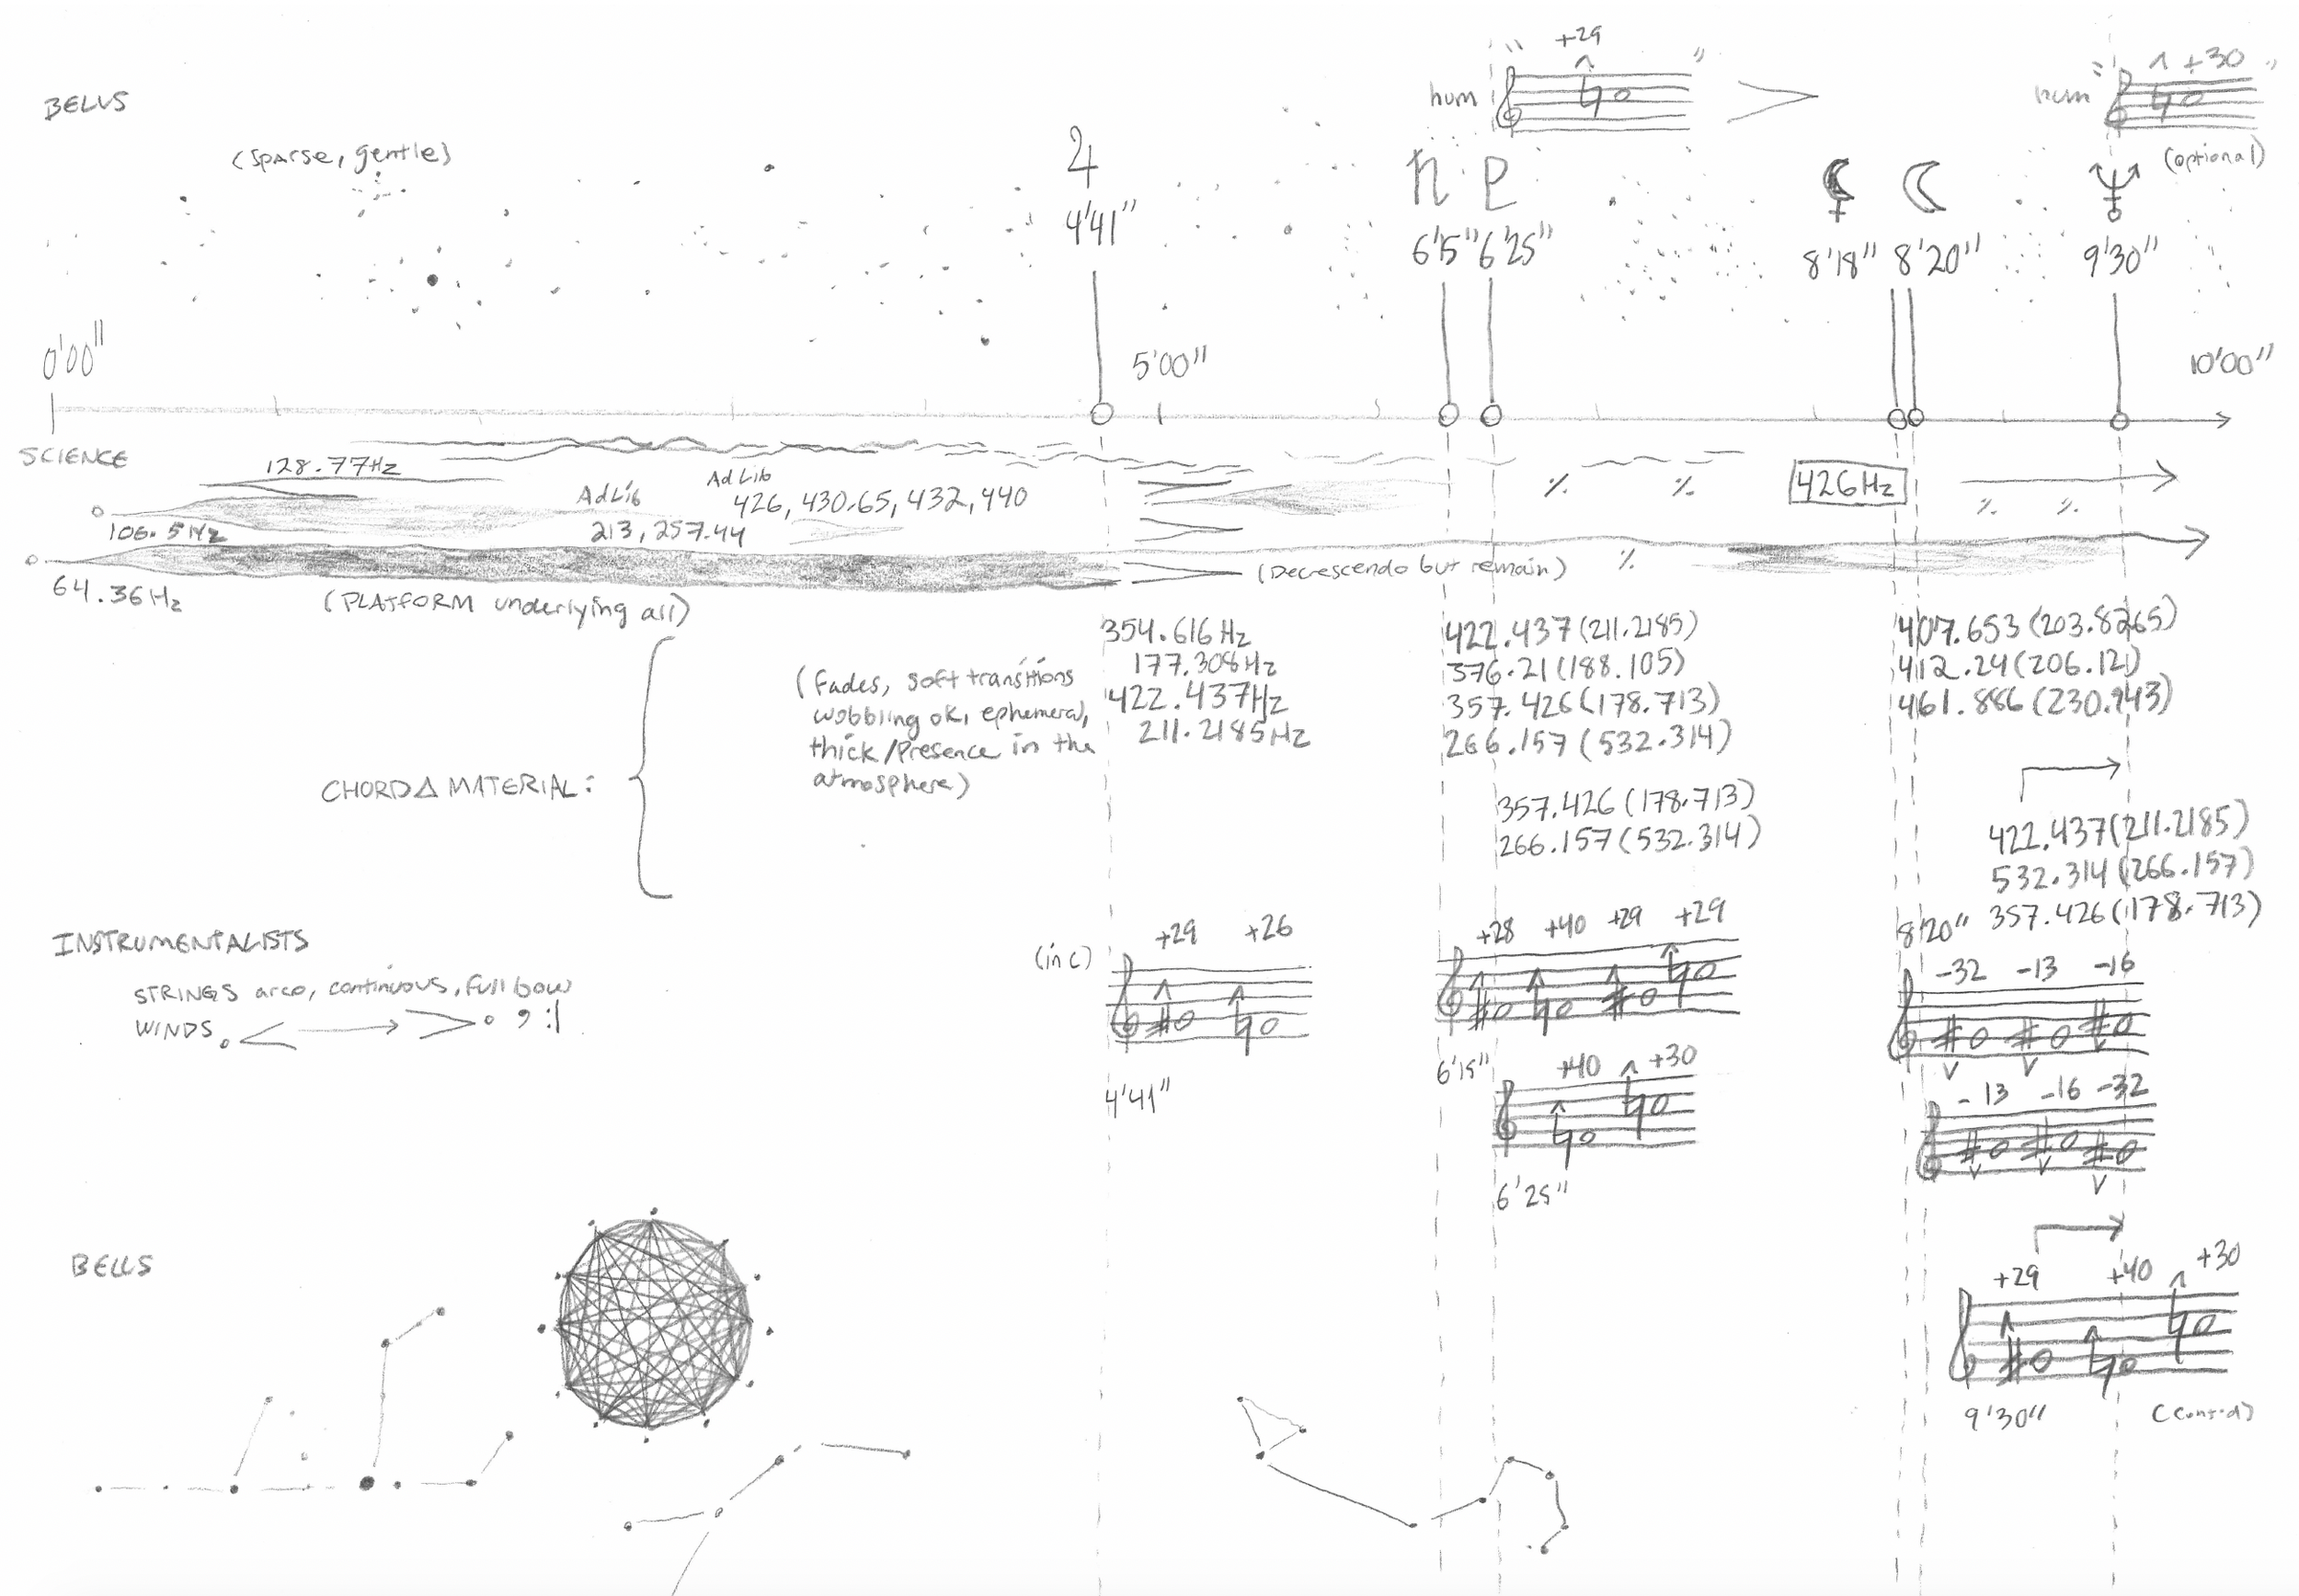 BELLS
(sparse, gentle)
hum
+29
hum
+30
(optional)
♃
4'41"
♄ ♇
6'15" 6'25"
⚸ ☾
8'18" 8'20"
♆
9'30"
0'00"
5'00"
10'00"
SCIENCE
128.77Hz
AdLib
AdLib
426, 430.65, 432, 440
106.5Hz
213, 257.44
426Hz
64.36Hz
(PLATFORM underlying all)
(Decrescendo but remain)
CHORD Δ MATERIAL:
(fades, soft transitions
wobbling ok, ephemeral,
thick/Presence in the
atmosphere)
354.616Hz
177.308Hz
422.437Hz
211.2185Hz
422.437(211.2185)
376.21(188.105)
357.426(178.713)
266.157(532.314)
357.426(178.713)
266.157(532.314)
407.653(203.8265)
412.24(206.12)
461.886(230.943)
422.437(211.2185)
532.314(266.157)
357.426(178.713)
INSTRUMENTALISTS
STRINGS arco, continuous, full bow
WINDS
(in C)
+29 +26
4'41"
+28 +40 +29 +29
6'15"
+40 +30
6'25"
8'20"
-32 -13 -16
-13 -16 -32
+29 +40 +30
9'30"
(cont'd)
BELLS